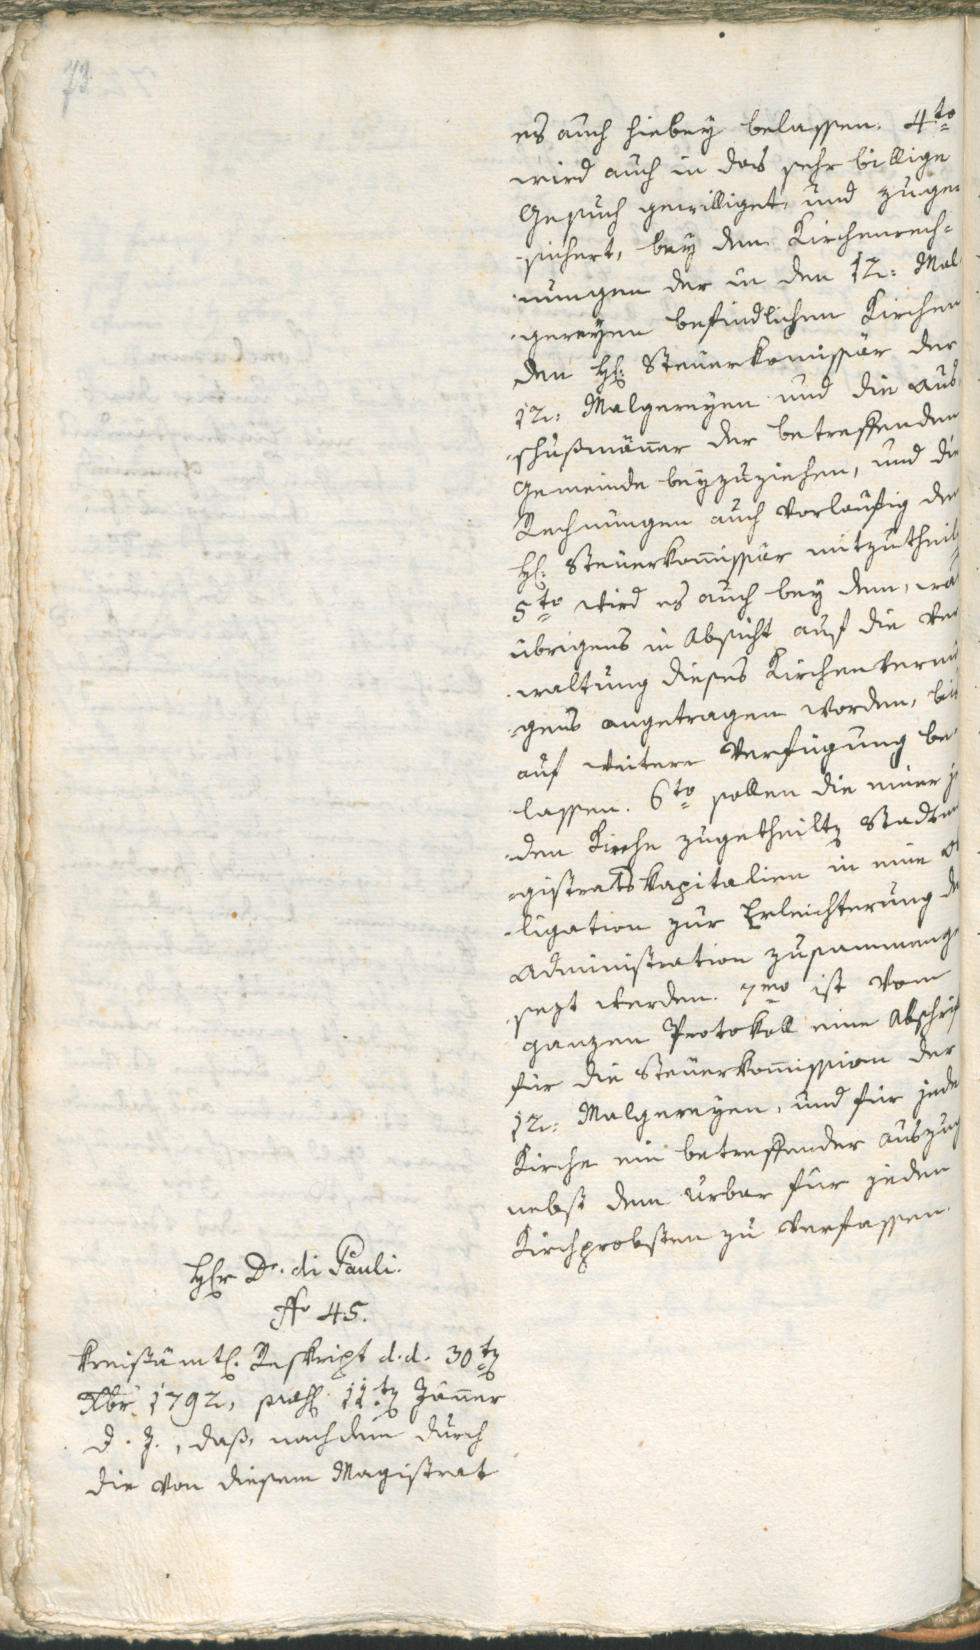 73
es auch hiebey belassen. 4to
wird auch in das sehr billige
Gesuch gewilliget, und zuge
sichert, bey den Kirchenrech-
nungen der in den 12: Mal
gereyen befindlichen Kirchen
den H: Steuerkomissär der
12: Malgereyen und die Aus
schußmäner der betreffenden
Gemeinde beyzuziehen, und die
Rechnungen auch vorläufig dem
H: Steuerkomissär mitzutheil
5to wird es auch bey dem, wa
übrigens in Absicht auf die Ver
waltung dieses Kirchenvermö
gens angetragen worden, bis
auf weitere Verfügung be
lassen. 6to sollen die einer j
den Kirche zugetheilte Stadtma
gistratskapitalien in eine O
ligation zur Erleichterung d
Administration zusammenge
sezt werden. 7mo ist vom
ganzen Protokoll eine Abschrif
für die Steuerkomission der
12: Malgereyen, und für jede
Kirche ein betreffender Auszug
nebst dem Urbar für jeden
Kirchprobsten zu verfassen.
Hr Dr. di Pauli.
No 45.
Kreißämtl. Reskript d. d. 30t
Xbr. 1792, 11t Jäner
d. J., daß, nachdem durch
die von diesem Magistrat